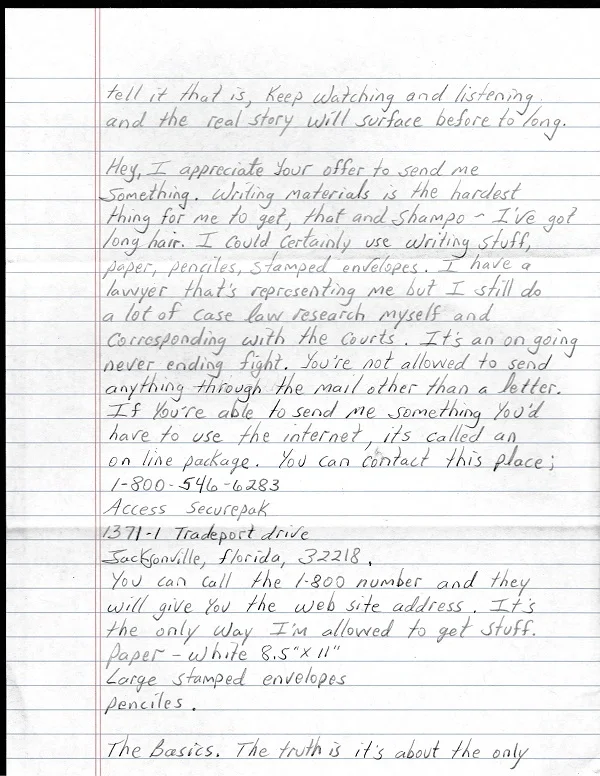 tell it that is, Keep watching and listening
and the real story will surface before to long.
Hey, I appreciate your offer to send me
Something. Writing materials is the hardest
thing for me to get, that and Shampo - I've got
long hair. I could certainly use writing stuff,
paper, penciles, stamped envelopes. I have a
lawyer that's representing me but I still do
a lot of case law research myself and
Corresponding with the Courts. It's an on going
never ending fight. You're not allowed to send
anything through the mail other than a letter.
If you're able to send me something you'd
have to use the internet, it's called an
on line package. You can contact this place;
1-800-546-6283
Access Securepak
1371-1 Tradeport drive
Jacksonville, florida, 32218.
You can call the 1-800 number and they
will give you the web site address. It's
the only way I'm allowed to get stuff.
Paper - White 8.5"X 11"
Large stamped envelopes
Penciles.
The Basics. The truth is it's about the only